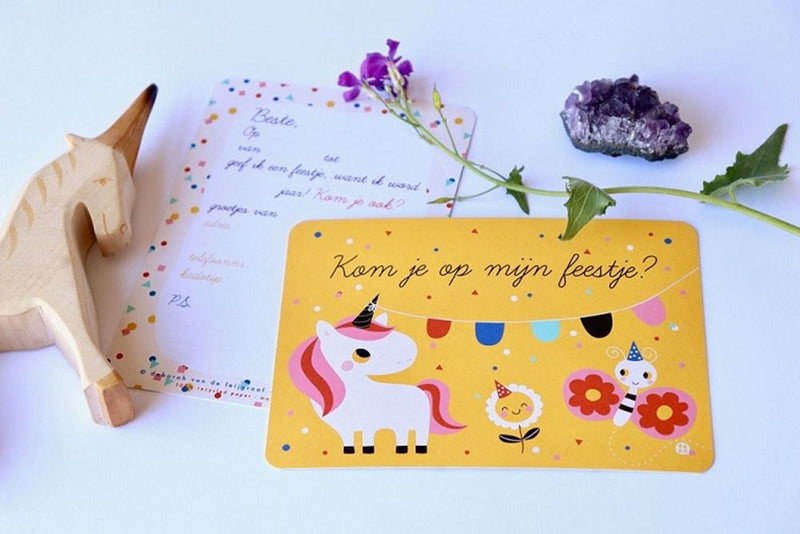 Beste,
Op
van tot
geef ik een feestje, want ik word
jaar! Kom je ook?
groetjes van
adres.
telefoonnr.
kadotip.
P.S.
© deborah van de leijgraaf
100% recycled paper
Kom je op mijn feestje?